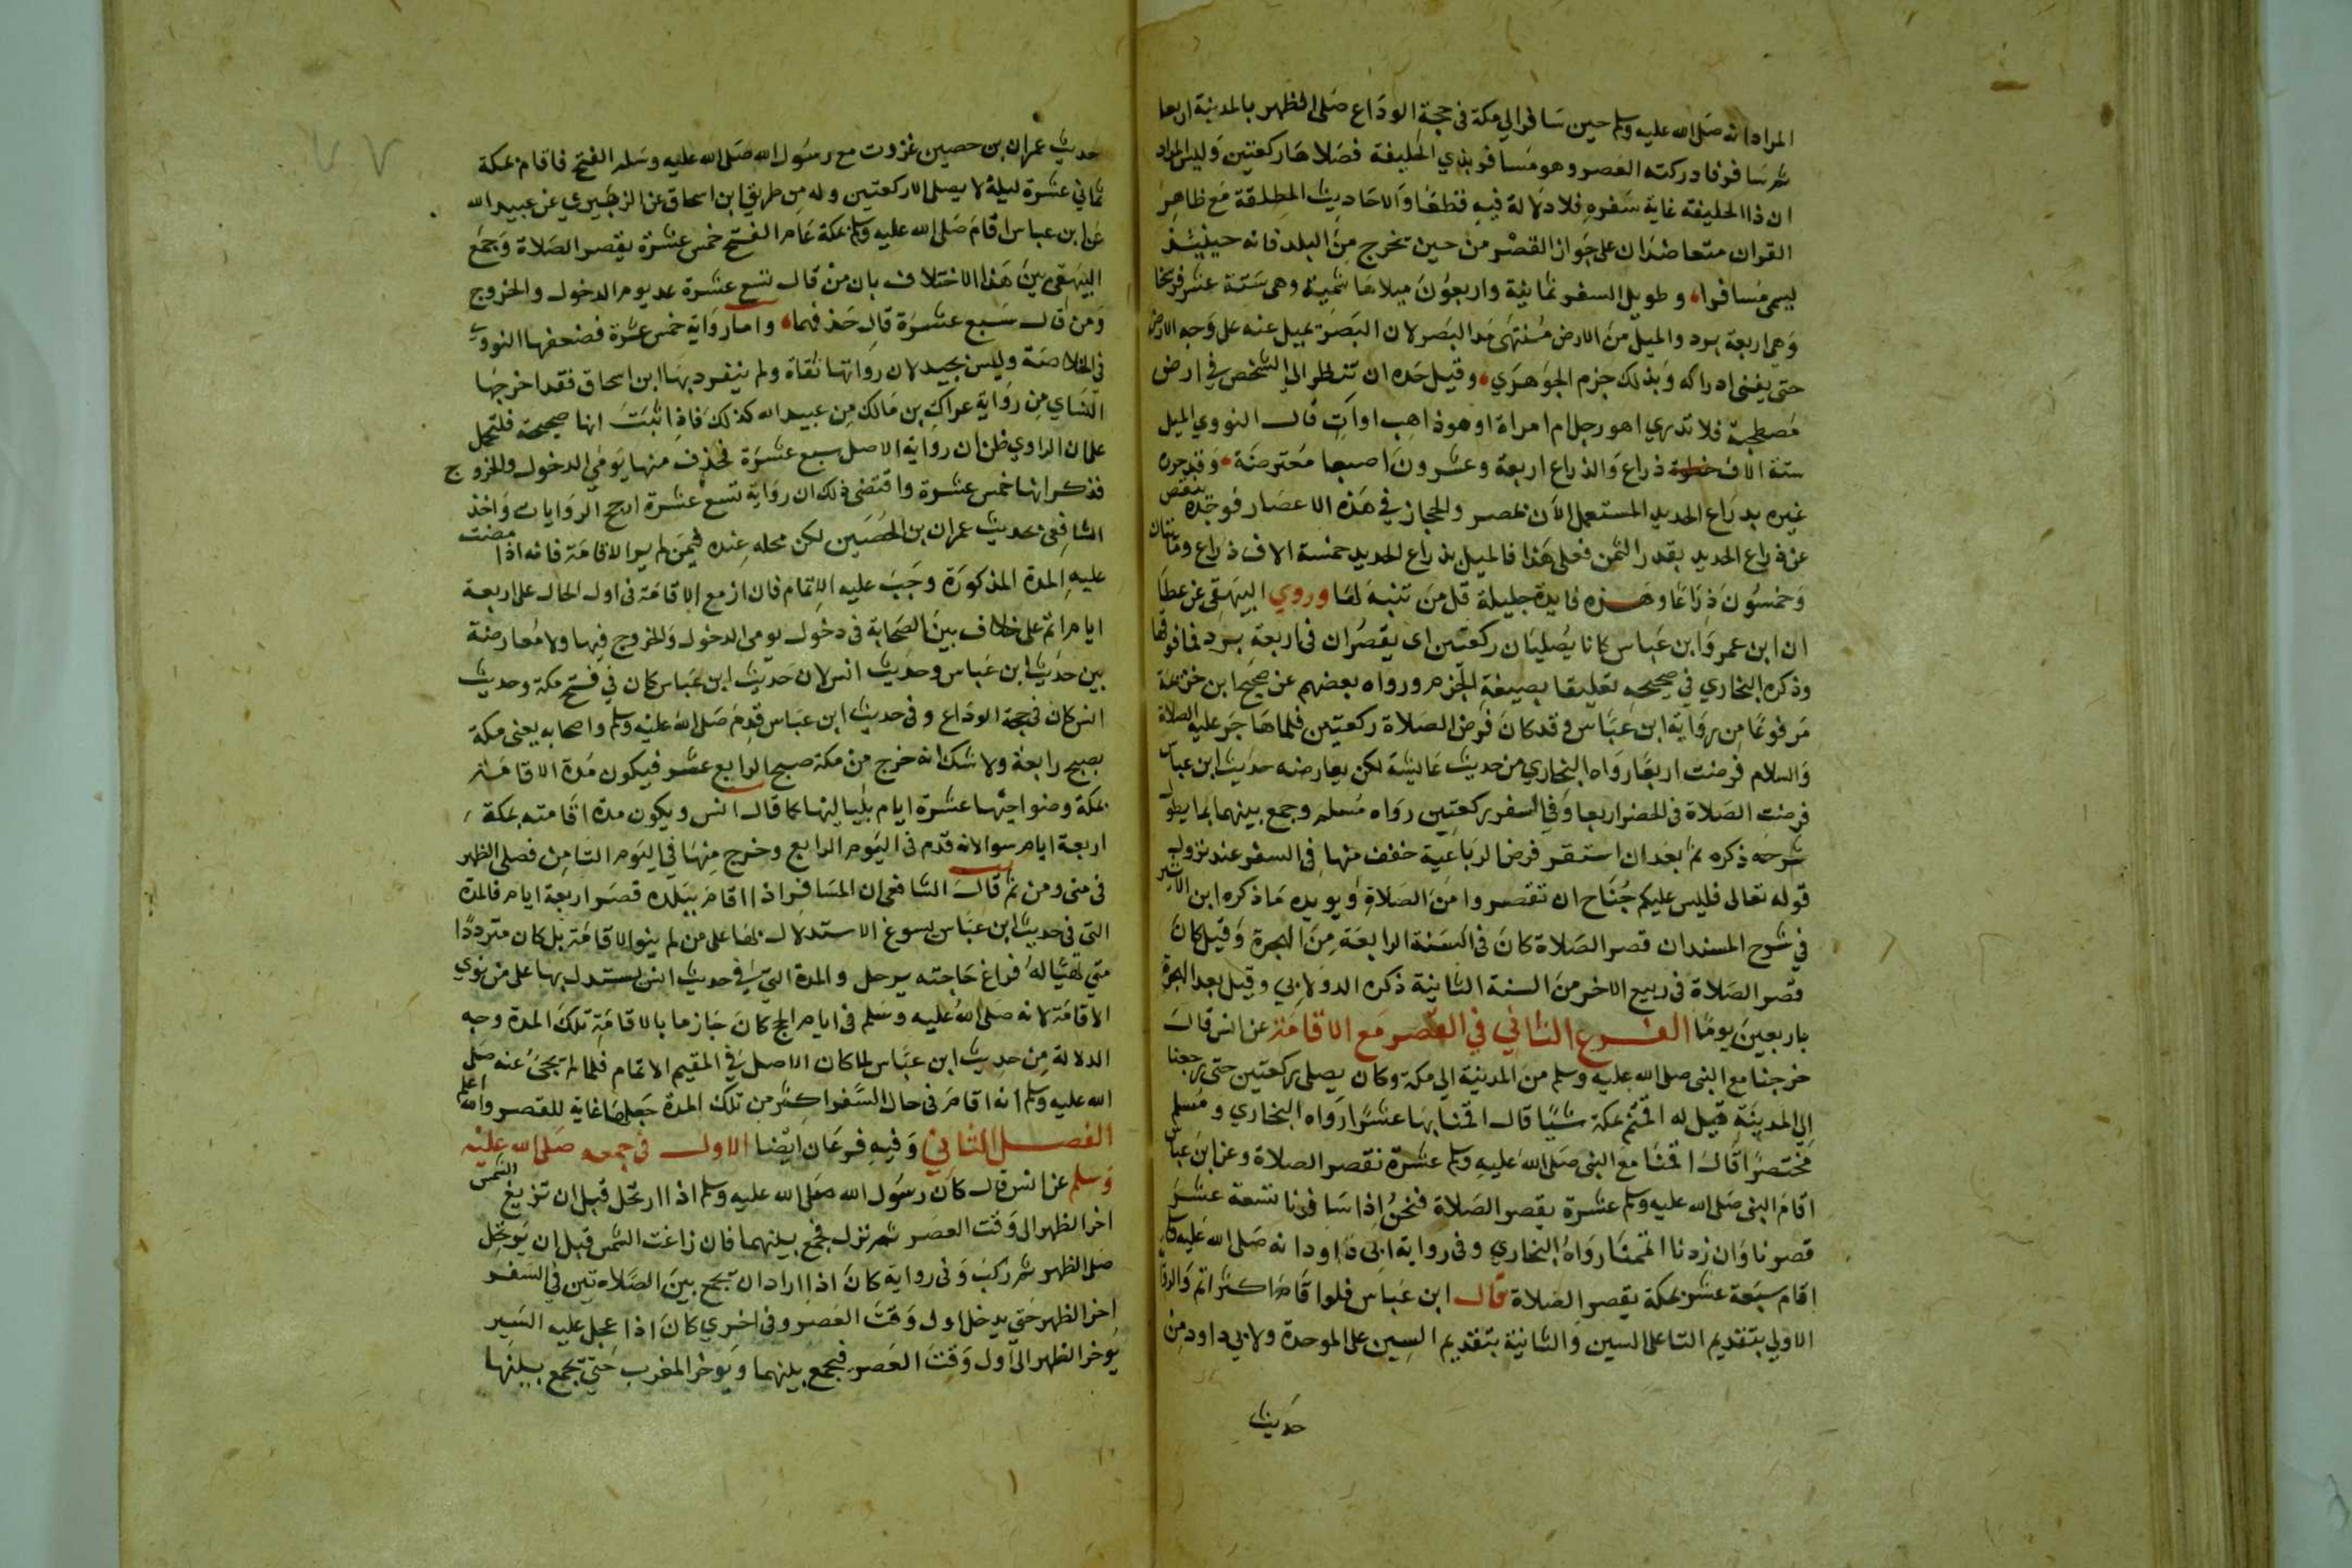 المراد انه صلى الله عليه وسلم حين سافر الي مكة في حجة الوداع صلى الظهر بالمدينة اربعا
ثم سافر فادركته العصر وهو مسافر بذي الحليفة فصلاها ركعتين وليس المراد
ان ذا الحليفة غاية سفره فلا دلالة فيه قطعا والاحاديث المطلقة مع ظاهر
القران متعاضدان على جواز القصر من حين تخرج من البلد فانه حينئذ
ليسمى مسافرا وطويل السفر ثمانية واربعون ميلا هاشمية وهي ستة عشر فرسخا
وهي اربعة برد والميل من الارض منتهى مد البصر لان البصر يميل عنه على وجه الارض
حتى يفنى ادراكه وبذلك جزم الجوهري وقيل حده ان تنظر الي الشخص في ارض
مصطحبة فلا تدري اهو رجل ام امراة او هو ذاهب او ات قال النووي الميل
ستة الاف ذراع والذراع اربعة وعشرون اصبعا معترضة وقد حرره
غيره بذراع الحديد المستعمل الآن بمصر والحجاز في هذه الاعصار فوجده ينقص
عن ذراع الحديد بقدر الثمن فعلى هذا فالميل بذراع الحديد خمسة الاف ذراع ومائتان
وخمسون ذراعا وهذه فايدة جليلة قل من تنبه لها وروي البيهقي عن عطا
ان ابن عمر وابن عباس كانا يصليان ركعتين اي يقصران في اربعة برد فما فوقها
وذكره البخاري في صحيحه تعليقا بصيغة الجزم ورواه بعضهم عن صحيح ابن خزيمة
مرفوعا من رواية ابن عباس وقد كان فرض الصلاة ركعتين فلما هاجر عليه الصلاة
والسلام فرضت اربعا رواه البخاري من حديث عايشة لكن يعارضه حديث ابن عباس
فرضت الصلاة في الحضر اربعا وفي السفر ركعتين رواه مسلم وجمع بينهما بما يطول
شرحه ذكره ثم بعد ان استقر فرض الرباعية خفف منها في السفر عند نزول
قوله تعالى فليس عليكم جناح ان تقصروا من الصلاة ويويده ما ذكره ابن الاثير
في شرح المسند ان قصر الصلاة كان في السنة الرابعة من الهجرة وقيل كان
قصر الصلاة في ربيع الاخر من السنة الثانية ذكره الدولابي وقيل بعد الهجرة
باربعين يوما الفرع الثاني في القصر مع الاقامة عن انس قال
خرجنا مع النبي صلى الله عليه وسلم من المدينة الي مكة وكان يصلي ركعتين حتى رجعنا
الي المدينة قيل له اقمتم بمكة شيا قال اقمنا بها عشرا رواه البخاري ومسلم
مختصرا قال اقمنا مع النبي صلى الله عليه وسلم عشرة نقصر الصلاة وعن ابن عباس
اقام النبي صلى الله عليه وسلم عشرة يقصر الصلاة فنحن اذا سافرنا تسعة عشر
قصرنا وان زدنا اتممنا رواه البخاري وفي رواية ابي داود انه صلى الله عليه وسلم
اقام سبعة عشر بمكة يقصر الصلاة قال ابن عباس فلو اقام اكثر اتم
الاولي بتقديم التا على السين والثانية بتقديم السين على الموحدة ولابي داود من
حديث
حديث عمران بن حصين غزوت مع رسول الله صلى الله عليه وسلم الفتح فاقام بمكة
ثماني عشرة ليلة لا يصلي الا ركعتين وله من طريق ابن اسحاق عن الزهيري عن عبيد الله
عن ابن عباس اقام صلى الله عليه وسلم بمكة عام الفتح خمس عشرة يقصر الصلاة وجمع
البيهقي بين هذا الاختلاف بان من قال تسع عشرة عد يوم الدخول والخروج
ومن قال سبع عشرة قال حذفهما واما رواية خمس عشرة فضعفها النووي
في الخلاصة وليس بجيد لان رواتها ثقاة ولم ينفرد بها ابن اسحاق فقد اخرجها
النساي من رواية عراك بن مالك من عبيد الله كذلك فاذا ثبت انها صحيحة فلتحمل
على ان الراوي ظن ان رواية الاصل سبع عشرة فحذف منها يومي الدخول والخروج
فذكر انها خمس عشرة واقتضى ذلك ان رواية تسع عشرة ارجح الروايات واخذ
الشافعي بحديث عمران بن الحصين لكن محله عنده فيمن لم ير الاقامة فانه اذا مضت
عليه المدة المذكورة وجب عليه الاتمام فان ازمع الاقامة في اول الحال على اربعة
ايام اتم على خلاف بين الصحابة في دخول يومي الدخول والخروج فيها ولا معارضة
بين حديث ابن عباس وحديث انس لان حديث ابن عباس كان في فتح مكة وحديث
انس كان في حجة الوداع وفي حديث ابن عباس قدم صلى الله عليه وسلم واصحابه يعني مكة
بصبح رابعة ولا شك انه خرج من مكة صبح الرابع عشر فيكون مدة الاقامة
بمكة وضواحيها عشرة ايام بلياليها كما قال انس ويكون مدة اقامته بمكة
اربعة ايام سوا لانه قدم في اليوم الرابع وخرج منها في اليوم الثامن فصلى الظهر
في منى ومن ثم قال الشافعي ان المسافر اذا اقام ببلده قصر اربعة ايام فالمدة
التي في حديث ابن عباس يسوغ الاستدلال بها على من لم ينو الاقامة بل كان مترددا
متي تهيا له فراغ حاجته يرحل والمدة التي في حديث انس يستدل بها على من نوي
الاقامة لانه صلى الله عليه وسلم في ايام الحج كان جازما بالاقامة تلك المدة وجه
الدلالة من حديث ابن عباس لما كان الاصل في المقيم الاتمام فلما لم تجئ عنه صلى
الله عليه وسلم انه اقام في حال السفر اكثر من تلك المدة جعلها غاية للقصر والله اعلم
الفصل الثاني وفيه فرعان ايضا الاول في جمعه صلى الله عليه
وسلم عن انس قال كان رسول الله صلى الله عليه وسلم اذا ارتحل قبل ان تزيغ الشمس
اخر الظهر الى وقت العصر ثم نزل فجمع بينهما فان زاغت الشمس قبل ان يرتحل
صلى الظهر ثم ركب وفي رواية كان اذا اراد ان يجمع بين الصلاتين في السفر
اخر الظهر حتي يدخل اول وقت العصر وفي اخري كان اذا عجل عليه السير
يوخر الظهر الى اول وقت العصر فيجمع بينهما ويوخر المغرب حتي يجمع بينها